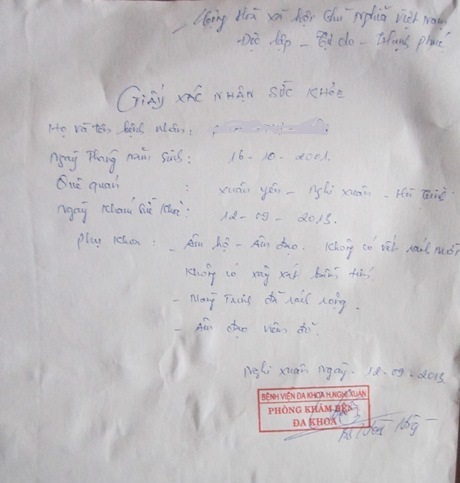 Cộng Hoà xã hội Chủ Nghĩa Việt Nam
Độc lập - Tự do - Hạnh phúc
GIẤY XÁC NHẬN SỨC KHỎE
Họ và tên bệnh nhân :
Ngày tháng năm sinh : 16 - 10 - 2001.
Quê quán : Xuân Yên - Nghi Xuân - Hà Tĩnh
Ngày khám sức khỏe : 12 - 09 - 2013.
Phụ khoa : - Âm hộ - Âm đạo. Không có vết rách mới
Không có xây xát
- Màng Trinh đã rách rộng.
- Âm đạo viêm đỏ.
Nghi Xuân Ngày. 12 - 09 - 2013
BỆNH VIỆN ĐA KHOA H.NGHI XUÂN
PHÒNG KHÁM BỆNH
ĐA KHOA